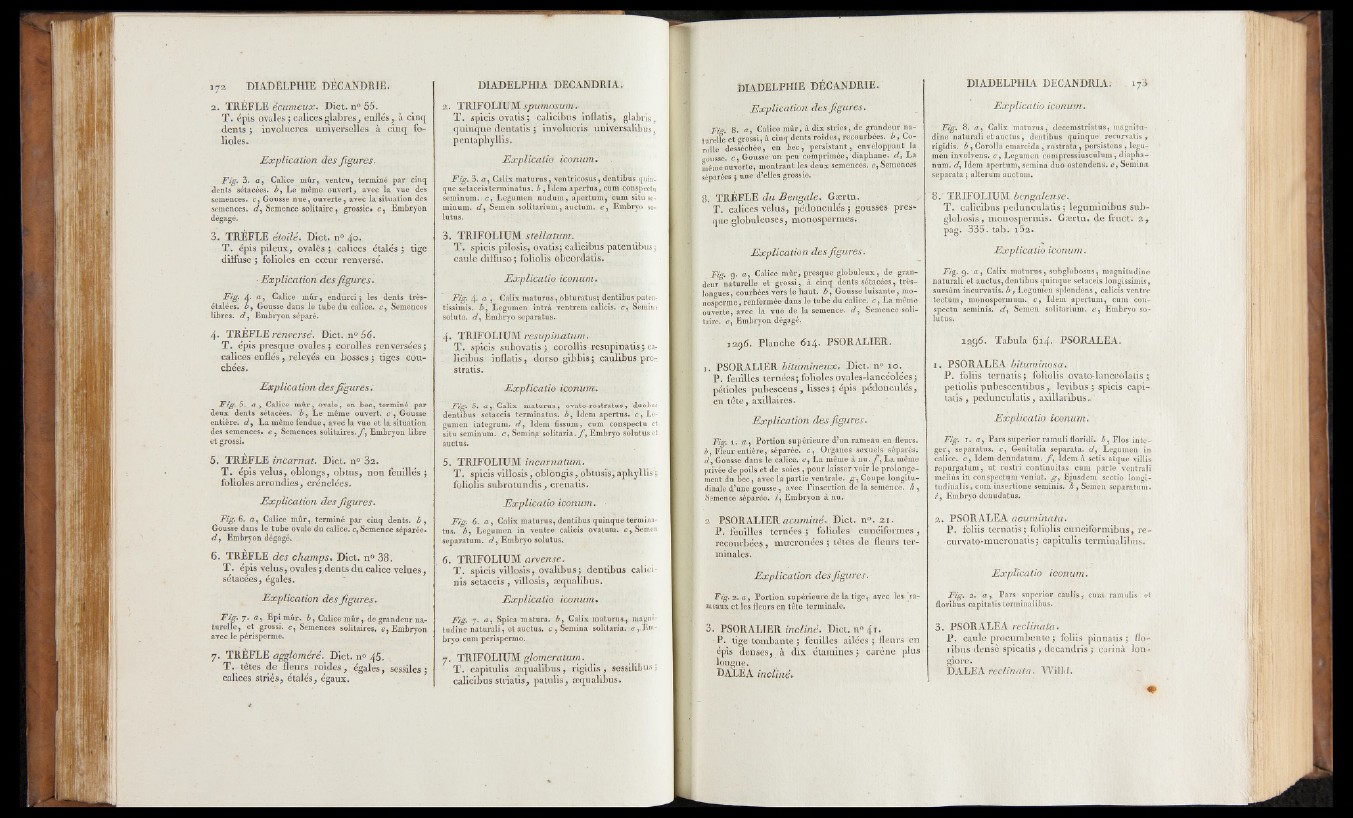 172 DIADELPHIE DÉCANDRIE.
2. TRÈFLE écumeux. Dict. n° 55.
T. épis ovales ; calices glabres, enflés, à cinq
dents ; involucres universelles à cinq fo-
lioles.
Explication des figures.
Fig. 3. a, Calice mûr, ventru, terminé par cinq
dents sétacées. b, Le même ouvert, avec la vue des
semences. c, Gousse nue, ouverte, avec la situation des
semences. d, Semence solitaire, grossie. e, Embryon
dégagé.
3. TRÈFLE étoilé. Dict. n° 40.
T. épis pileux, ovales ; calices étalés ; tige
diffuse ; folioles en cœur renversé.
Explication des figures.
Fig. 4. a, Calice mûr, endurci ; les dents très-
étalées. b, Gousse dans le tube du calice. c, Semences
libres. d, Embryon séparé.
4. TRÈFLE renversé. Dict. n° 56.
T. épis presque ovales ; corolles renversées ;
calices enflés, relevés en bosses ; tiges cou-
chées.
Explication des figures.
Fig. 5. a, Calice mûr, ovale, en bec, terminé par
deux dents sétacées. b, Le même ouvert. c, Gousse
entière. d, La même fendue, avec la vue et la situation
des semences. e, Semences solitaires. f, Embryon libre
et grossi.
5. TRÈFLE incarnat. Dict. n° 32.
T. épis velus, oblongs, obtus, non feuillés ;
folioles arrondies, crénelées.
Explication des figures.
Fig. 6. a, Calice mûr, terminé par cinq dents. b,
Gousse dans le tube ovale du calice. c, Semence séparée.
d, Embryon dégagé.
6. TRÈFLE des champs. Dict. n° 38.
T. épis velus, ovales ; dents du calice velues,
sétacées, égales.
Explication des figures.
Fig. 7. a, Epi mûr. b, Calice mûr, de grandeur na-
turelle, et grossi. c, Semences solitaires. e, Embryon
avec le périsperme.
7. TRÈFLE aggloméré. Dict. n° 45.
T. têtes de fleurs roides, égales, sessiles ;
calices striés, étalés, égaux.
DIADELPHIA DECANDRIA.
2. TRIFOLIUM spumosum.
T. spicis ovatis ; calicibus inflatis, glabris,
quinque dentatis ; involucris universalibus,
pentaphyllis.
Explicatio iconum.
Fig. 3. a, Calix maturus, ventricosus, dentibus quin-
que setaceis terminatus. b, Idem apertus, cum conspectu
seminum. c, Legumen nudum, apertum, cum situ se-
minum. d, Semen solitarium, auctum. e, Embryo so-
lutus.
3. TRIFOLIUM stellatum.
T. spicis pilosis, ovatis ; calicibus patentibus ;
caule diffuso ; foliolis obcordatis.
Explicatio iconum.
Fig. 4. a, Calix maturus, obturatus ; dentibus paten-
tissimis. b, Legumen intrà ventrem calicis. c, Semina
soluta. d, Embryo separatus.
4. TRIFOLIUM resupinatum.
T. spicis subovatis ; corollis resupinatis ; ca-
licibus inflatis, dorso gibbis ; caulibus pro-
stratis.
Explicatio iconum.
Fig. 5. a, Calix maturus, ovato-rostratus, duobus
dentibus setaceis terminatus. b, Idem apertus. c, Le-
gumen integrum. d, Idem fissum, cum conspectu et
situ seminum. e, Semina solitaria. f, Embryo solutus et
auctus.
5. TRIFOLIUM incarnatum.
T. spicis villosis, oblongis, obtusis, aphyllis ;
foliolis subrotundis, crenatis.
Explicatio iconum.
Fig. 6. a, Calix maturus, dentibus quinque termina-
tus. b, Legumen in ventre calicis ovatum. c, Semen
separatum. d, Embryo solutus.
6. TRIFOLIUM arvense.
T. spicis villosis, ovalibus ; dentibus calici-
nis setaceis, villosis, æqualibus.
Explicatio iconum.
Fig. 7. a, Spica matura. b, Calix maturus, magni-
tudine naturali, et auctus. c, Semina solitaria. e, Em-
bryo cum perispermo.
7. TRIFOLIUM glomeratum.
T. capitulis æqualibus, rigidis, sessilibus ;
calicibus striatis, patulis, æqualibus.
DIADELPHIE DÉCANDRIE.
Explication des figures.
Fig. 8. a, Calice mûr, à dix stries, de grandeur na-
turelle et grossi, à cinq dents roides, recourbées. b, Co-
rolle desséchée, en bec, persistant, enveloppant la
gousse. c, Gousse un peu comprimée, diaphane. d, La
même ouverte, montrant les deux semences. e, Semences
séparées ; une d'elles grossie.
8. TRÈFLE du Bengale. Gærtn.
T. calices velus, pédonculés ; gousses pres-
que globuleuses, monospermes.
Explication des figures.
Fig. 9. a, Calice mûr, presque globuleux, de gran-
deur naturelle et grossi, à cinq dents sétacées, très-
longues, courbées vers le haut. b, Gousse luisante, mo-
nosperme, renfermée dans le tube du calice. c, La même
ouverte, avec la vue de la semence. d, Semence soli-
taire. e, Embryon dégagé.
1296. Planche 614. PSORALIER.
1. PSORALIER bitumineux. Dict. n° 10.
P. feuilles ternées ; folioles ovales-lancéolées ;
pétioles pubescens, lisses ; épis pédonculés,
en tête, axillaires.
Explication des figures.
Fig. 1. a, Portion supérieure d'un rameau en fleurs.
b, Fleur entière, séparée. c, Organes sexuels séparés.
d, Gousse dans le calice. e, La même à nu. f, La même
privée de poils et de soies, pour laisser voir le prolonge-
ment du bec, avec la partie ventrale. g, Coupe longitu-
dinale d'une gousse, avec l'insertion de la semence. h,
Semence séparée. i, Embryon à nu.
2. PSORALIER acuminé. Dict. n°. 21.
P. feuilles ternées ; folioles cunéiformes,
recourbées, mucronées ; têtes de fleurs ter-
minales.
Explication des figures.
Fig. 2. a, Portion supérieure de la tige, avec les ra-
meaux et les fleurs en tête terminale.
3. PSORALIER incliné. Dict. n° 41.
P. tige tombante ; feuilles ailées ; fleurs en
épis denses, à dix étamines ; carène plus
longue.
DALEA incliné.
DIADELPHIA DECANDRIA. 173
Explicatio iconum.
Fig. 8. a, Calix maturus, decemstriatus, magnitu-
dine naturali et auctus, dentibus quinque recurvatis,
rigidis. b, Corolla emarcida, rostrata, persistens, legu-
men involvens. c, Legumen compressiusculum, diapha-
num. d, Idem apertum, semina duo ostendens. e, Semina
separata ; alterum auctum.
8. TRIFOLIUM bengalense.
T. calicibus pedunculatis ; leguminibus sub-
globosis, monospermis. Gærtn. de fruct. 2,
pag. 335. tab. 152.
Explicatio iconum.
Fig. 9. a, Calix maturus, subglobosus, magnitudine
naturali et auctus, dentibus quinque setaceis longissimis,
sursùm incurvatis. b, Legumen splendens, calicis ventre
tectum, monospermum. c, Idem apertum, cum con-
spectu seminis. d, Semen solitarium. e, Embryo so-
lutus.
1296. Tabula 614. PSORALEA.
1. PSORALEA bituminosa.
P. foliis ternatis ; foliolis ovato-lanceolatis ;
petiolis pubescentibus, levibus ; spicis capi-
tatis, pedunculatis, axillaribus.
Explicatio iconum.
Fig. 1. a, Pars superior ramuli floridi. b, Flos inte-
ger, separatus. c, Genitalia separata. d, Legumen in
calice. e, Idem denudatum. f, Idem à setis atque villis
repurgatum, ut rostri continuitas cum parte ventrali
melius in conspectum veniat. g, Ejusdem sectio longi-
tudinalis, cum insertione seminis. h, Semen separatum.
i, Embryo denudatus.
2. PSORALEA acuminata.
P. foliis ternatis ; foliolis cuneiformibus, re-
curvato-mucronatis ; capitulis terminalibus.
Explicatio iconum.
Fig. 2. a, Pars superior caulis, cum ramulis et
floribus capitatis terminalibus.
3. PSORALEA reclinata.
P. caule procumbente ; foliis pinnatis ; flo-
ribus densè spicatis, decandris ; carinâ lon-
giore.
DALEA reclinata. Willd.